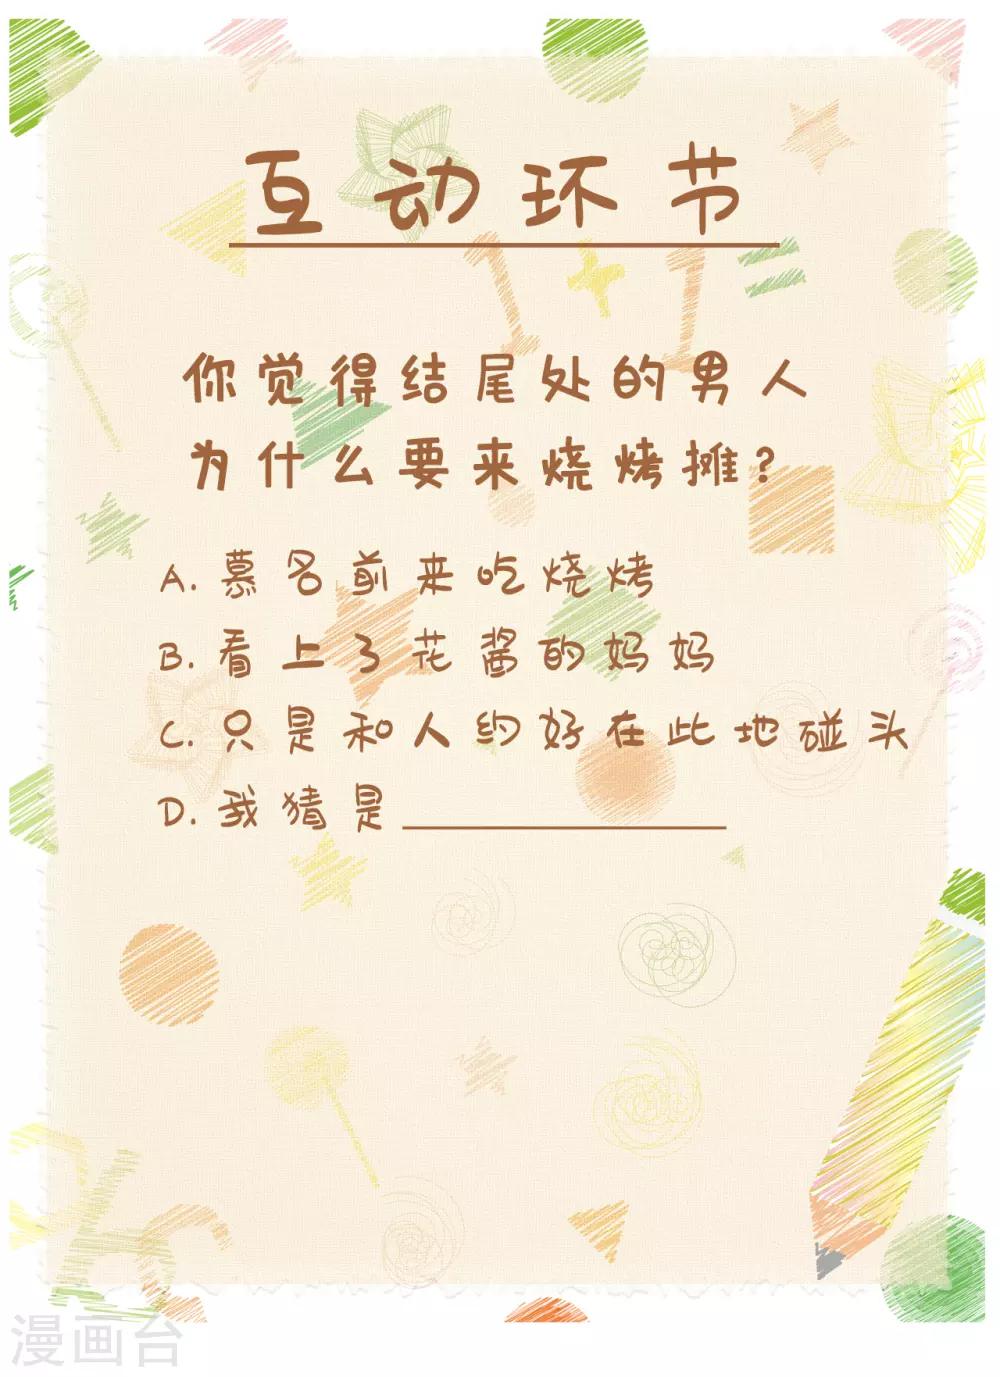 互动环节
1+1=
你觉得结尾处的男人
为什么要来烧烤摊?
A.慕名前来吃烧烤
B.看上了花酱的妈妈
C.只是和人约好在此地碰头
D.我猜是
漫画台